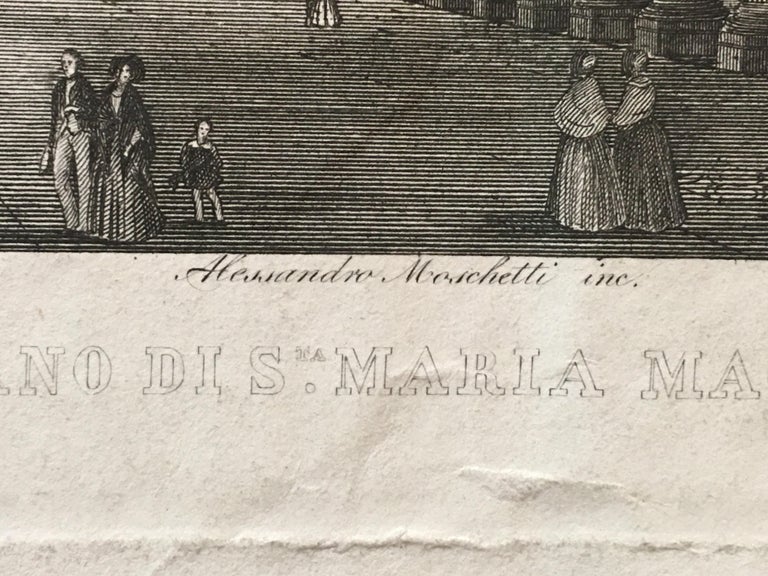 Alessandro Moschetti inc.
ANO DI S.TA MARIA MA